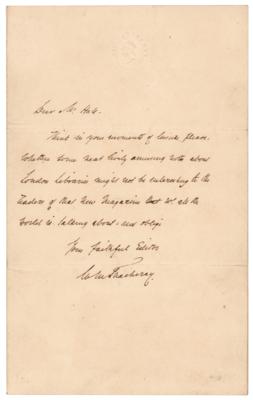 Dear Mr.
Think in your moments of leisure please.
Whether some neat lively amusing note about
London Libraries might not be interesting to the
Readers of that New Magazine that we all the
World is talking about. and oblige
Your faithful Editor
W M Thackeray